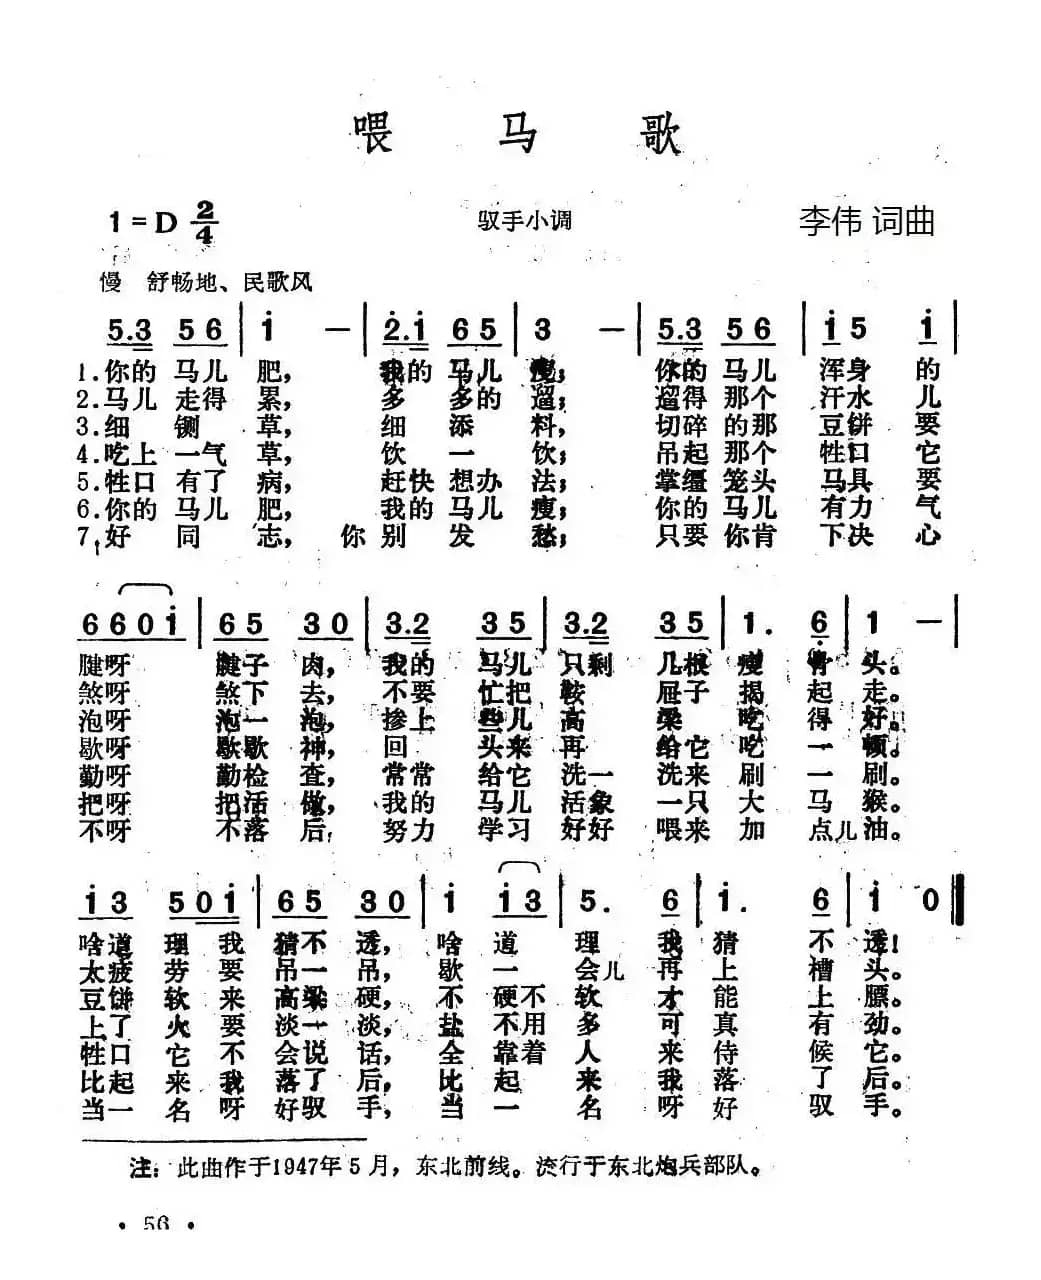 喂马歌
1=D 2/4
驭手小调
李伟 词曲
慢 舒畅地、民歌风
5.3 56 | i — | 2.i 65 | 3 — | 5.3 56 | i 5 i |
1.你的 马儿 肥， 我的 马儿 瘦； 你的 马儿 浑身 的
2.马儿 走得 累， 多 多的 遛； 遛得 那个 汗水 儿
3.细 铡 草， 细 添 料， 切碎 的那 豆饼 要
4.吃上 一气 草， 饮 一 饮； 吊起 那个 牲口 它
5.牲口 有了 病， 赶快 想办 法； 掌缰 笼头 马具 要
6.你的 马儿 肥， 我的 马儿 瘦； 你的 马儿 有力 气
7.好 同 志， 你 别 发 愁； 只要 你肯 下决 心
660i | 65 30 | 3.2 35 | 3.2 35 | 1. 6 | 1 — |
腱呀 腱子 肉， 我的 马儿 只剩 几根 瘦 骨 头。
煞呀 煞下 去， 不要 忙把 鞍 屉子 揭 起 走。
泡呀 泡一 泡， 掺上 些儿 高 梁 吃 得 好。
歇呀 歇歇 神， 回 头来 再 给它 吃 一 顿。
勤呀 勤检 查， 常常 给它 洗一 洗来 刷 一 刷。
把呀 把活 做， 我的 马儿 活象 一只 大 马 猴。
不呀 不落 后， 努力 学习 好好 喂来 加 点儿 油。
i3 50i | 65 30 | i i3 | 5. 6 | i. 6 | i 0 ‖
啥道 理 我 猜不 透， 啥 道 理 我 猜 不 透！
太疲 劳 要 吊一 吊， 歇 一 会儿 再 上 槽 头。
豆饼 软 来 高梁 硬， 不 硬不 软 才 能 上 膘。
上了 火 要 淡一 淡， 盐 不用 多 可 真 有 劲。
牲口 它 不 会说 话， 全 靠着 人 来 侍 候 它。
比起 来 我 落了 后， 比 起 来 我 落 了 后。
当一 名 呀 好驭 手， 当 一 名 呀 好 驭 手。
注：此曲作于1947年5月，东北前线。流行于东北炮兵部队。
• 56 •